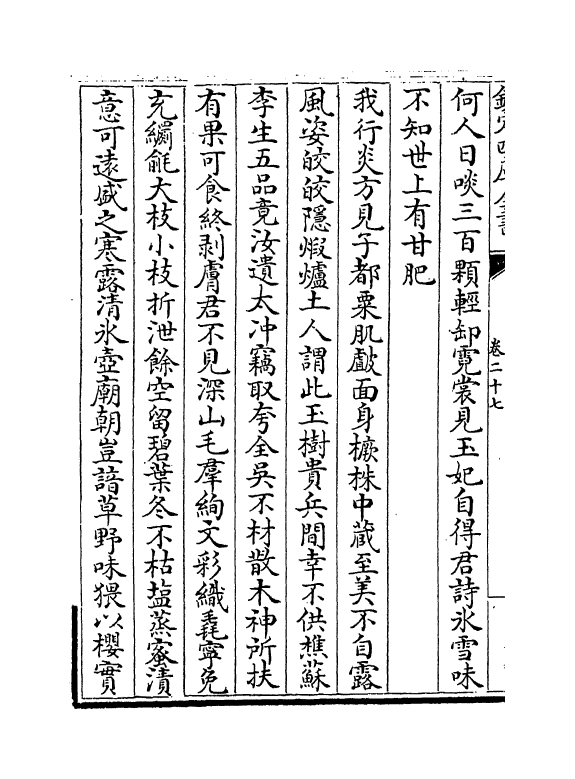 欽定四庫全書
卷二十七
何人日啖三百顆輕卸霓裳見玉妃自得君詩氷雪味
不知世上有甘肥
我行炎方見子都粟肌皻面身橛株中蔵至美不自露
風姿皎皎隱煆爐土人謂此玉樹貴兵間幸不供樵蘇
李生五品竟汝遺太冲竊取夸全吳不材散木神所扶
有果可食終剥膚君不見深山毛羣絢文彩織毳寧免
充罽毹大枝小枝折泄餘空留碧葉冬不枯塩蒸蜜漬
意可遠感之寒露清氷壺廟朝豈諳草野味猥以櫻實